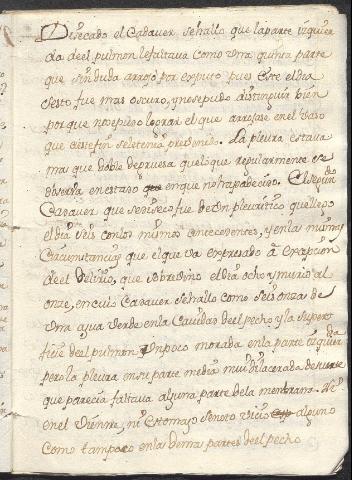 Disecado el Cadaver se hallo que la parte izquier
da de el pulmon le faltava como una quinta parte
que sin duda arrojo por esputo pues este el dia
sesto fue mas oscuro, y no se pudo distinguir bien
por que no se pudo lograr el que arrojase en el vaso
que a este fin se le tenia prevenido. La pleura estava
mas que doble de gruesa que lo que regularmente se
observa en estano en que no ha padecido. El segundo
Cadaver que se diseco fue de un pleuritico que llego
el dia seis con los mismos antecedentes, y en las mismas
Circunstancias que el que va expresado a excepcion
de el Delirio, que sobrevino el dia ocho y murio al
onze, en cuio Cadaver se hallo como seis onzas de
una agua verde en la Cavidad de el pecho y la super
ficie de el pulmon un poco morada en la parte izquierda
pero la pleura en su parte media mui dilacerada de suerte
que parecia faltava alguna parte de la membrana. No
en el Vientre, ni Estomago se noto vicio alguno
Como tampoco en las demas partes de el pecho